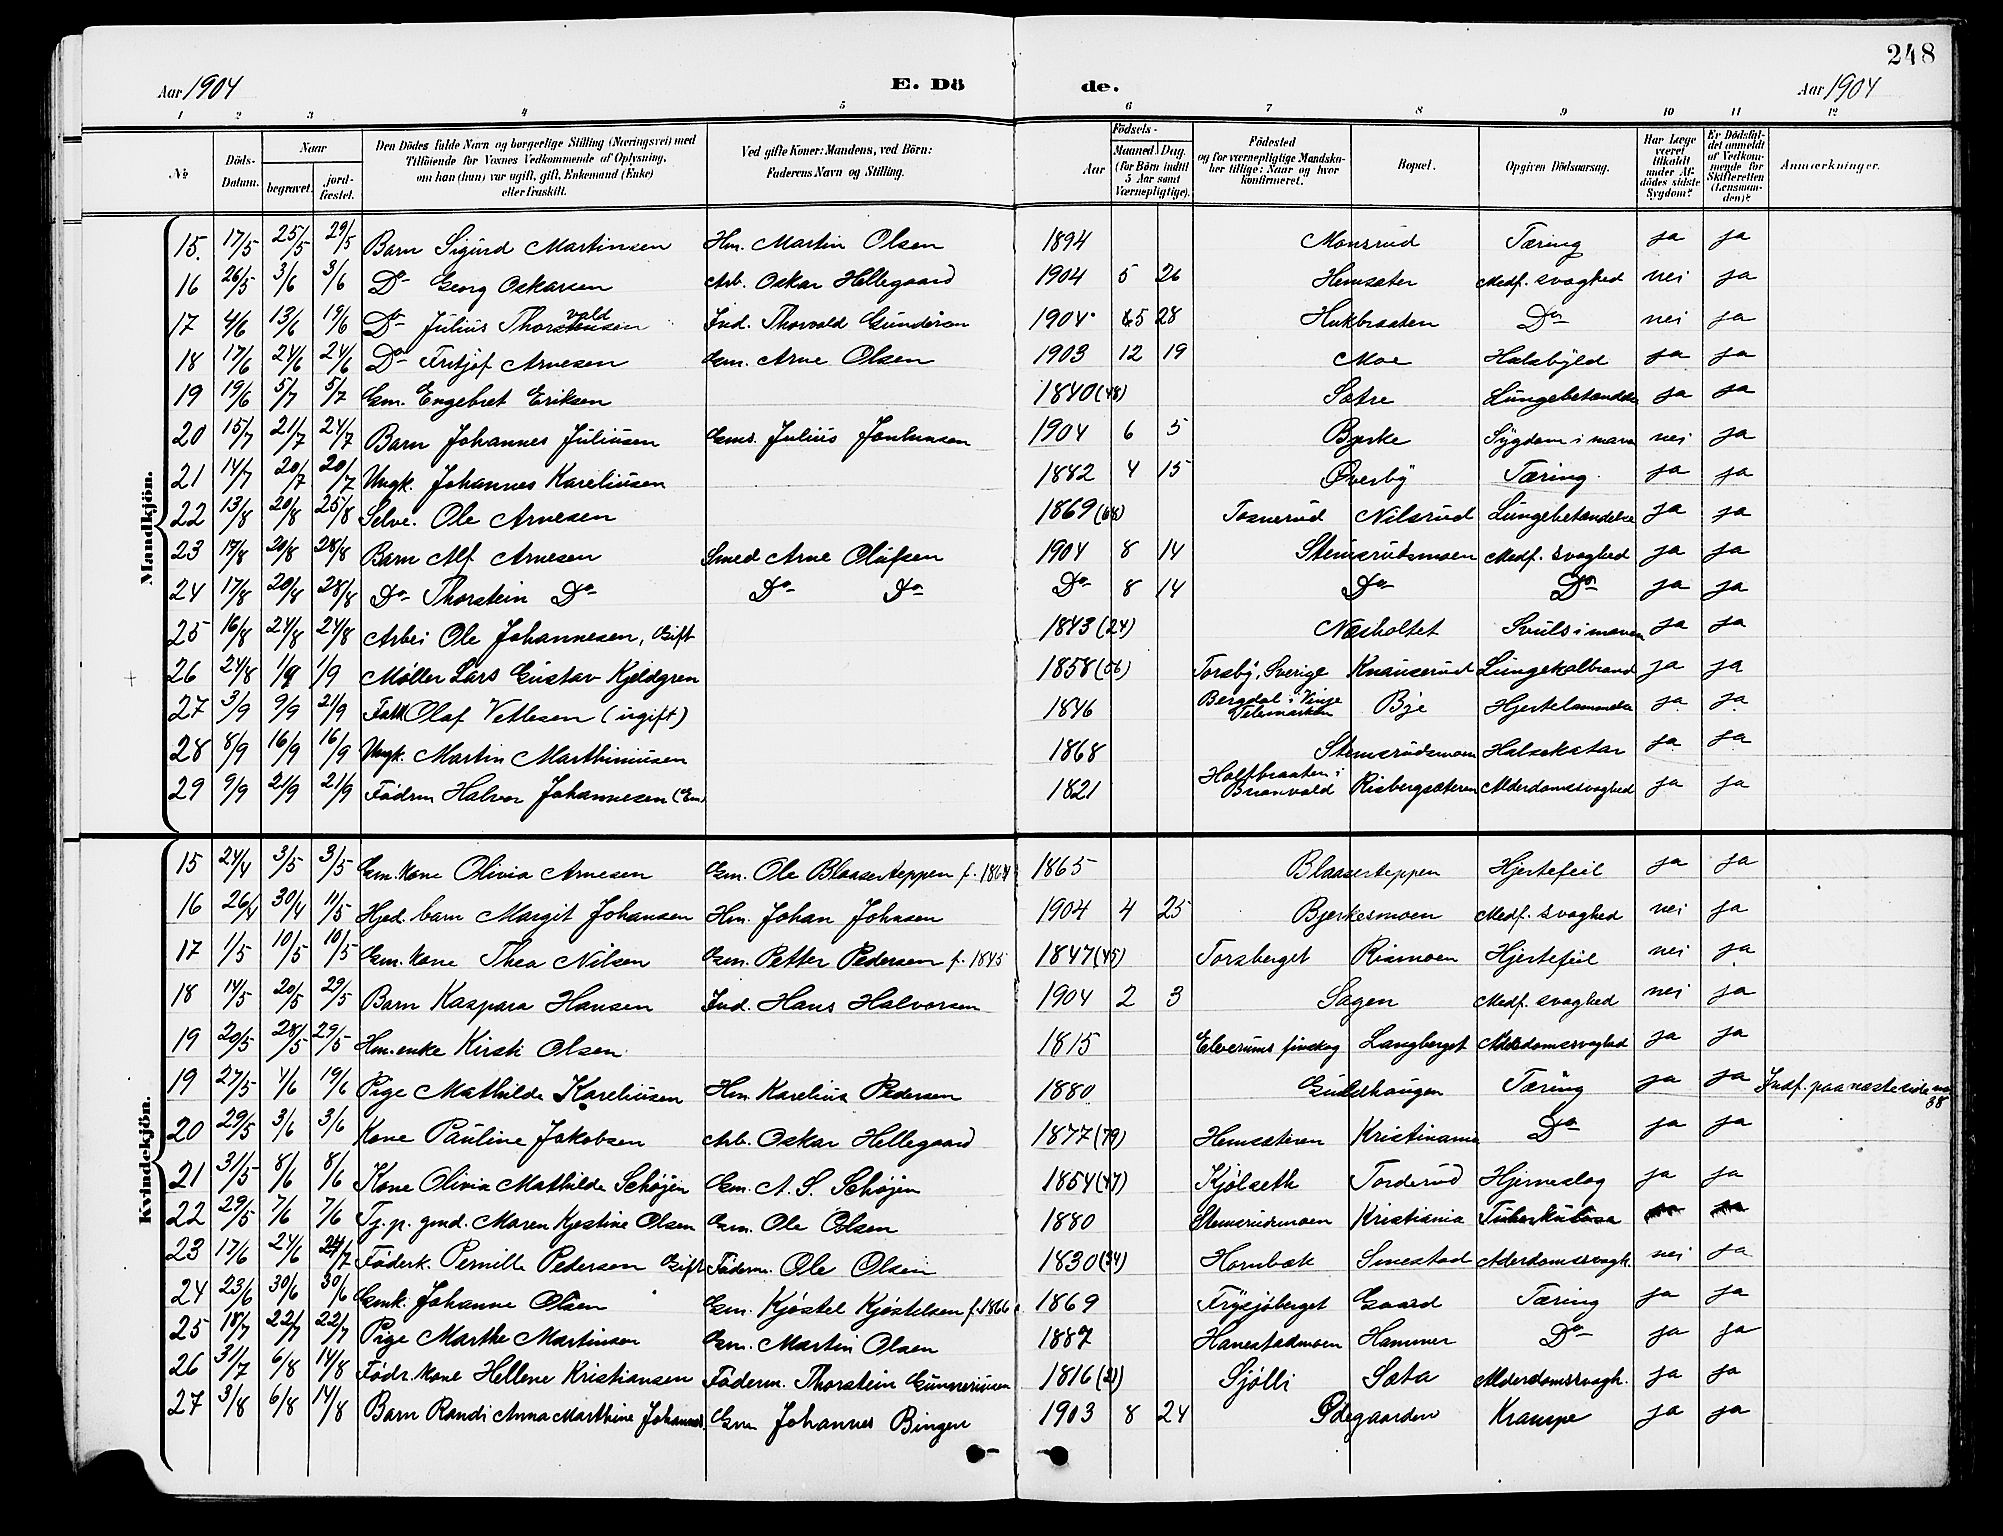 248
Aar 1904 E. Dö de. Aar 1904
1 2 3 4 5 6 7 8 9 10 11 12
№
Döds-Datum.
Naar
begravet.
jordfæstet.
Den Dödes fulde Navn og borgerlige Stilling (Næringsvei) med Tilföiende for Voxnes Vedkommende af Oplysning, om han (hun) var ugift, gift, Enkemand (Enke) eller fraskilt.
Ved gifte Koner: Mandens, ved Börn: Faderens Navn og Stilling.
Födsels-
Aar
Maaned Dag.
(for Börn indtil 5 Aar samt Værnepligtige).
Födested og for værnepligtige Mandskaber tillige: Naar og hvor konfirmeret.
Bopæl.
Opgiven Dödsaarsag.
Har Læge været tilkaldt under Afdödes sidste Sygdom?
Er Dödsfaldet anmeldt af Vedkommende for Skifteretten (Lensmanden)?
Anmærkninger.
Mandkjön.
15. 17/5 25/5 29/5 Barn Sigurd Martinsen Hm. Martin Olsen 1894 Monsrud Tæring ja ja
16 26/5 3/6 3/6 Do Georg Oskarsen Arb. Oskar Hellegaard 1904 5 26 Hemsæter Medf. svaghed nei ja
17 4/6 13/6 19/6 Do Julius Thorvald Ind. Thorvald Gundersen 1904 5 28 Hukbraaten Do nei ja
18 17/6 24/6 24/6 Do Fritjof Arnesen Gm. Arne Olsen 1903 12 19 Moe Halsbyld ja ja
19 19/6 5/7 5/7 Gm. Engebret Eriksen 1840 (48) Sætre Lungebetændelse ja ja
20 15/7 21/7 24/7 Barn Johannes Juliusen Gms. Julius 1904 6 5 Bjerke Sygdom i maven nei ja
21 14/7 20/7 20/7 Ungk. Johannes Kareliusen 1882 4 15 Øverby Tæring. ja ja
22 13/8 20/8 25/8 Selve. Ole Arnesen 1869 (68) Tosnerud Nilsrud Lungebetændelse ja ja
23 17/8 20/8 28/8 Barn Alf Arnesen Smed Arne Olufsen 1904 8 14 Stemsrudsmoen Medf. svaghed ja ja
24 17/8 20/8 28/8 Do Thorstein Do Do Do Do 8 14 Do Do ja ja
25 16/8 24/8 24/8 Arbei Ole Johannesen, Gift 1843 (24) Næsholtet Svuls i maven ja ja
26 24/8 1/9 1/9 Møller Lars Gustav Kjeldgren 1858 (56) Torsby, Sverige Knauserud Lungekolbrand ja ja
27 3/9 9/9 21/9 Fatt Olaf Vetlesen (ugift) 1846 Bergdal i Vinje Telemarken Bye Hjertelammelse ja ja
28 8/9 16/9 16/9 Ungk. Martin Marthiniusen 1868 Stemsrudsmoen Halsekatar ja ja
29 9/9 21/9 21/9 Födrm Halvor Johannesen (Em) 1821 Holtbraaten i Brandvold Risbergsæteren Alderdomssvaghed ja ja
Kvindekjön.
15 24/4 3/5 3/5 Gm. kone Olivia Arnesen Gm. Ole Blaaserteppen f. 1864 1865 Blaaserteppen Hjertefeil ja ja
16 26/4 30/4 11/5 Hjed. barn Margit Johansen Hm. Johan Johnsen 1904 4 25 Bjerkesmoen Medf. svaghed nei ja
17 1/5 10/5 10/5 Gm. kone Thea Nilsen Gm. Petter Pedersen f. 1845 1847 (45) Torsberget Rismoen Hjertefeil nei ja
18 14/5 20/5 29/5 Barn Kaspara Hansen Ind. Hans Halvorsen 1904 2 3 Sagen Medf. svaghed nei ja
19 20/5 28/5 29/5 Hm. enke Kirsti Olsen 1815 Elverums finskog Langberget Alderdomssvaghed ja ja
19 27/5 4/6 19/6 Pige Mathilde Kareliusen Hm Karelius Pedersen 1880 Guldhaugen Tæring ja ja Indf. paa næste side no 38
20 29/5 3/6 3/6 Kone Pauline Jakobsen Arb. Oskar Hellegaard 1877 (79) Hemsæteren Kristinania Do ja ja
21 31/5 8/6 8/6 Kone Olivia Mathilde Schøjen Gm. A. S. Schøjen 1854 (47) Kjølseth Torderud Hjerneslag ja ja
22 29/5 7/6 7/6 Tj. p. gmd. Maren Kjestine Olsen Gm. Ole Olsen 1880 Stemsrudmoen Kristiania Tuberkulosa
23 17/6 24/6 24/7 Föderk. Pernille Pedersen Gift Föderm. Ole Olsen 1830 (34) Hornbæk Smestad Alderdomssvagh. nei ja
24 23/6 30/6 30/6 Gmk. Johanne Olsen Gm. Kjøstel Kjøstelsen f. 1866 1869 Frysjöberget Gaard Tæring ja ja
25 18/7 22/7 22/7 Pige Marthe Martinsen Gm. Martin Olsen 1887 Hanestadmoen Hammer Do ja ja
26 31/7 6/8 14/8 Födr. kone Hellene Kristiansen Föderm. Thorstein Gunneriusen 1816 Sjølli Sæta Alderdomssvagh. ja ja
27 3/8 6/8 14/8 Barn Randi Anna Marthine Johannes. Gm Johannes Bingen 1903 8 24 Ødegaarden Krampe ja ja